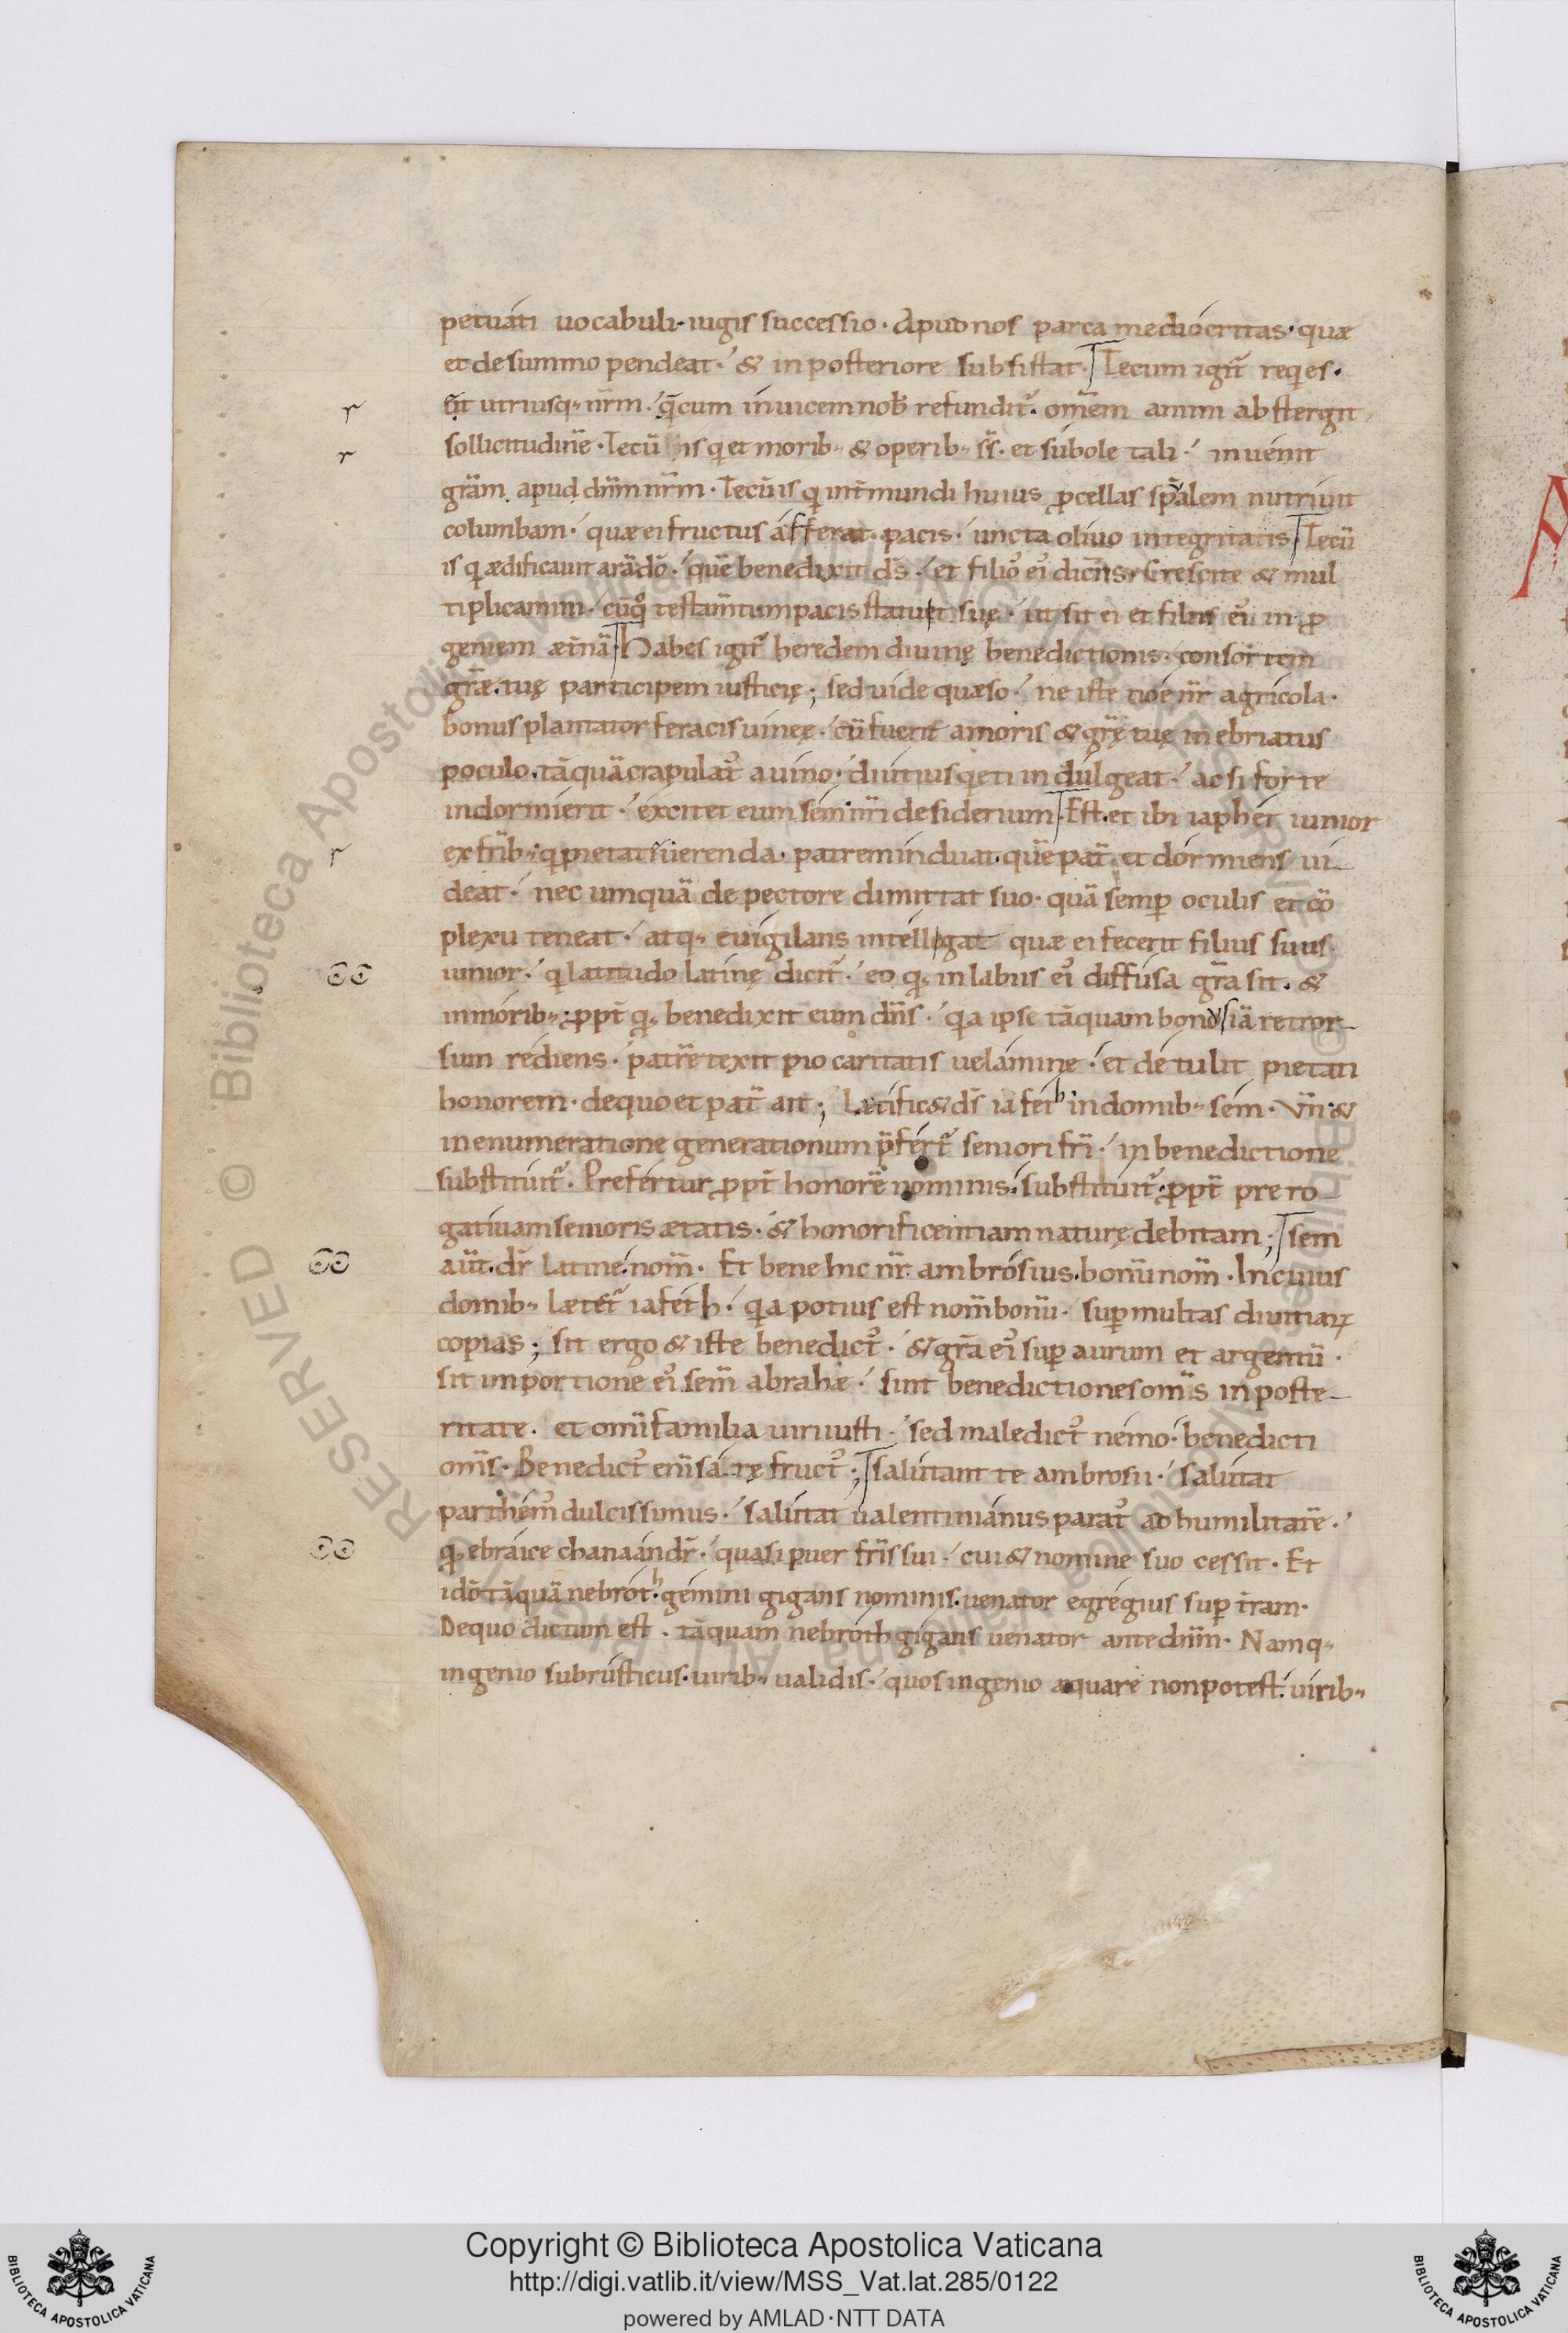 petuati uocabuli· iugis successio· Apud nos parca mediocritas· quæ
et de summo pendeat· & in posteriore subsistat· Tecum igit̃ reqes·
sit utriusq· nr̃m· q̃ cum inuicem nob̃ refundit᷑· om̃em animi abstergit
sollicitudinẽ· Tecũ is q et morib· & operib· sc̃s· et subole tali· inuenit
grãm apud dñm nr̃m· Tecũ is q int̃ mundi huius ꝓcellas sp̃alem nutriuit
columbam· quæ ei fructus afferat pacis· uncta oliuo integritatis· Tecũ
is q ædificauit arã dõ· quẽ benedixit ds̃· et filioˀ eiˀ dicñs· Crescite & mul
tiplicamini· cũ qͦ testam̃tum pacis statuit suę· ut sit ei et filiis eiˀ in ꝓ
geniem æt̃nã· Habes igit᷑ heredem diuinę benedictionis· consortem
grãe· tuę participem iusticię; sed uide quæso· ne iste noe nr̃ agricola·
bonus plantator feracis uineę· cũ fuerit amoris & gr̃ę tuę inebriatus
poculo· tãquã crapulatˀ a uino· diutius qeti indulgeat· ac si forte
indormierit· excitet eum sem nr̃i desiderium· Est et ibi iaphet iunior
ex fr̃ib· q pietate uerenda· patrem induat· quẽ pat̃ et dormiens ui-
deat· nec umquã de pectore dimittat suo· quã semꝑ oculis et cõ
plexu teneat· atq· euigilans intelligat quæ ei fecerit filius suus
iunior· q latitudo latinę dicit᷑· eo q· in labiis eiˀ diffusa gr̃a sit· &
in morib· ꝓpt̃ q· benedixit eum dñs· qa ipse tãquam bonus iã retror-
sum rediens· patrẽ texit pio caritatis uelamine· et detulit pietati
honorem· de quo et pat̃ ait; Lætific& ds̃ iafeth in domib· sem· Vñ &
in enumeratione generationum p̃fert᷑ seniori fr̃i· in benedictione
substituit᷑· Prefertur ꝓpt̃ honorẽ nominis· substituit᷑ ꝓpt̃ prero-
gatiuam senioris ætatis· & honorificentiam naturę debitam; sem
aũt dr̃ latine nom̃· Et bene hic nr̃ ambrosius· bonũ nom̃· In cuius
domib· lætet᷑ iafeth· qa potius est nom̃ bonũ· suꝑ multas diuitiaꝝ
copias; sit ergo & iste benedictˀ· & gr̃a eiˀ suꝑ aurum et argentũ·
sit in portione eiˀ sem̃ abrahæ· sint benedictiones om̃s in poste-
ritate· et om̃i familia uiri iusti· sed maledictˀ nemo· benedicti
om̃s· Benedictˀ eni᷑ sarrę fructˀ; Salutant te ambrosii· salutat
parthemˀ dulcissimus· salutat ualentinianus paratˀ ad humilitatẽ·
q· ebraice chanaan dr̃· quasi puer fr̃is sui· cui & nomine suo cessit· Et
idõ tãquã nebroth· gemini gigans nominis· uenator egregius suꝑ t̃ram·
De quo dictum est· tãquam nebroth gigans uenator ante dñm· Namq·
ingenio subrusticus· uirib· ualidis· quos ingenio æquare non potest· uirib·
r
r
r
Copyright © Biblioteca Apostolica Vaticana
http://digi.vatlib.it/view/MSS_Vat.lat.285/0122
powered by AMLAD·NTT DATA
BIBLIOTECA APOSTOLICA VATICANA
BIBLIOTECA APOSTOLICA VATICANA